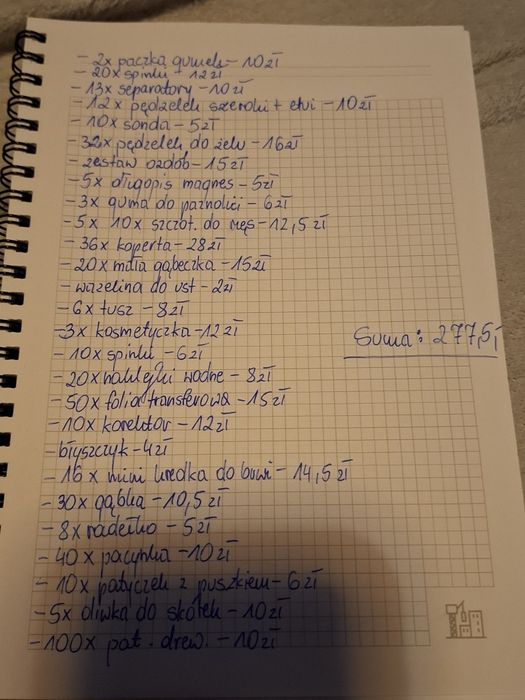 - 2x paczka gumek - 10zł
- 20x spinki - 12zł
- 13x separatory - 10zł
- 12x pędzelek szeroki + etui - 10zł
- 10x sonda - 5zł
- 32x pędzelek do żelu - 16zł
- zestaw ozdób - 15zł
- 5x długopis magnes - 5zł
- 3x guma do paznokci - 6zł
- 5x 10x szczot. do rzęs - 12,5zł
- 36x koperta - 28zł
- 20x mała gąbeczka - 15zł
- wazelina do ust - 2zł
- 6x tusz - 8zł
- 3x kosmetyczka - 12zł
Suma: 277,5zł
- 10x spinki - 6zł
- 20x naklejki wodne - 8zł
- 50x folia transferowa - 15zł
- 10x korektor - 12zł
- błyszczyk - 4zł
- 16x mini kredka do brwi - 14,5zł
- 30x gąbka - 10,5zł
- 8x radełko - 5zł
- 40x pacynka - 10zł
- 10x patyczek z puszkiem - 6zł
- 5x oliwka do skórek - 10zł
- 100x pat. drew. - 10zł